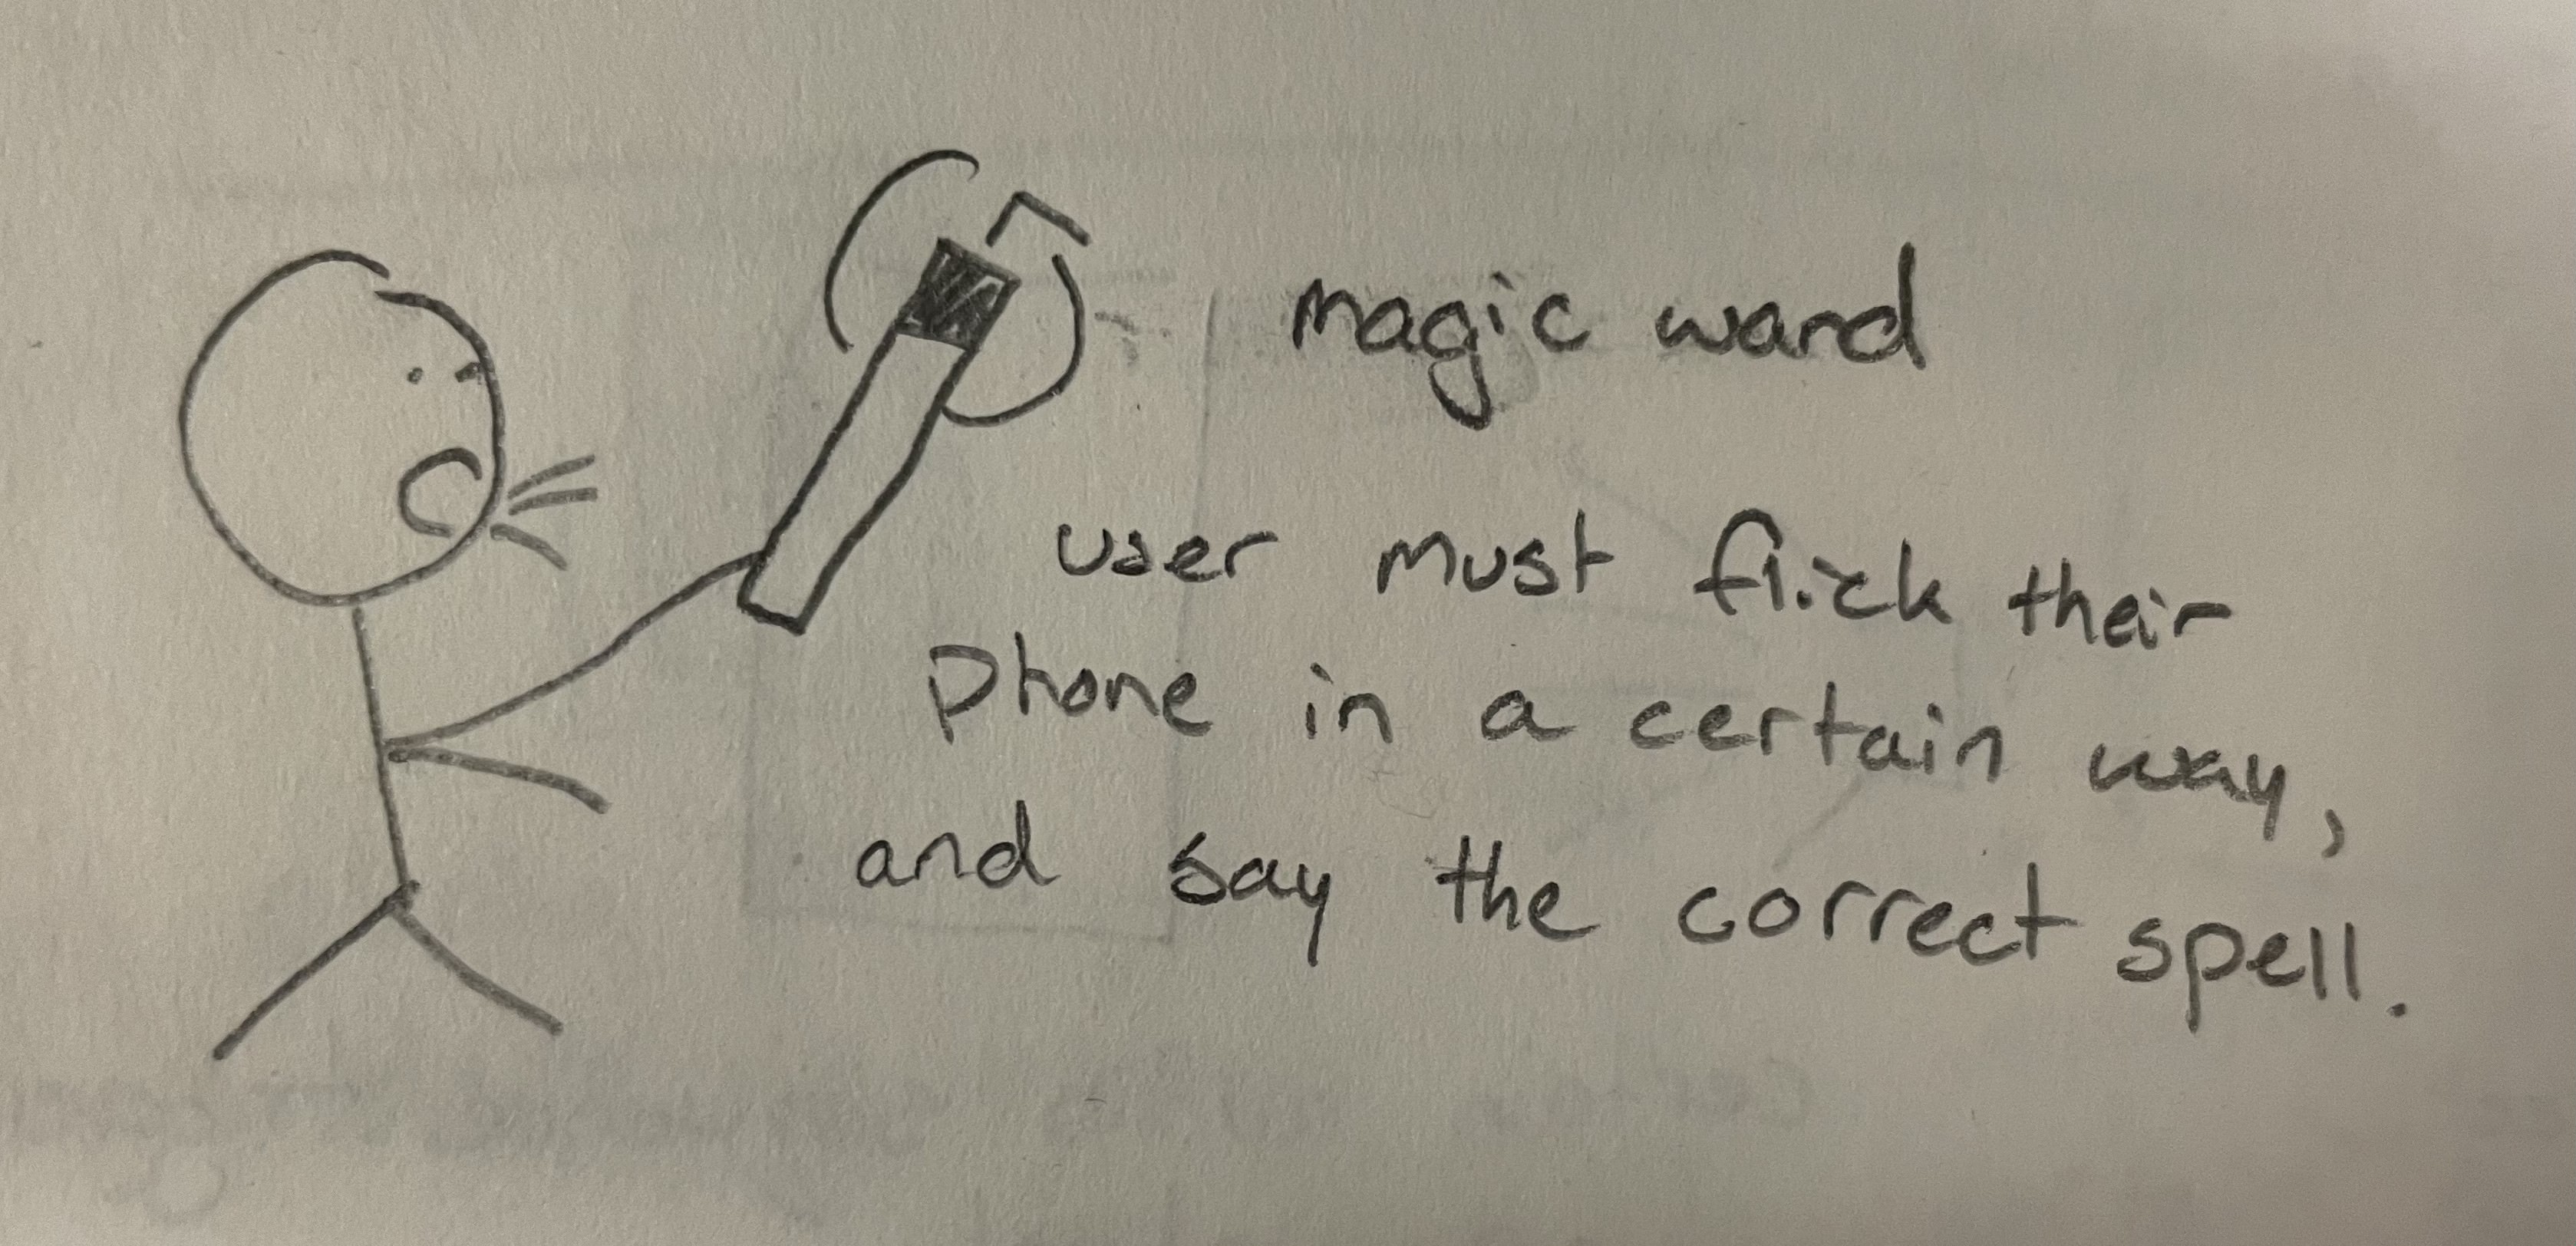 magic wand
user must flick their
phone in a certain way,
and say the correct spell.